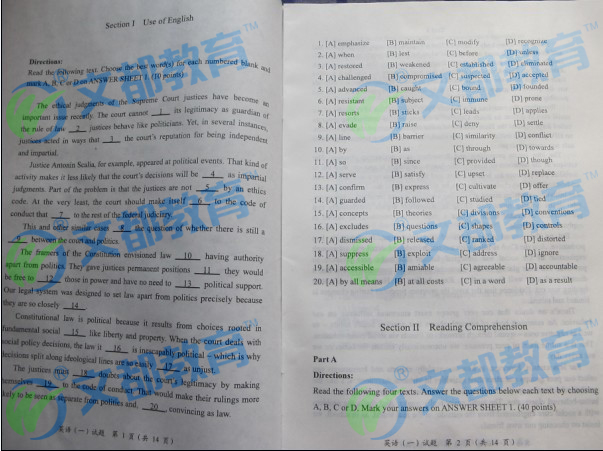 Section I Use of English
Directions:
Read the following text. Choose the best word(s) for each numbered blank and
mark A, B, C or D on ANSWER SHEET 1. (10 points)
The ethical judgments of the Supreme Court justices have become an
important issue recently. The court cannot 1 its legitimacy as guardian of
the rule of law 2 justices behave like politicians. Yet, in several instances,
justices acted in ways that 3 the court's reputation for being independent
and impartial.
Justice Antonin Scalia, for example, appeared at political events. That kind of
activity makes it less likely that the court's decisions will be 4 as impartial
judgments. Part of the problem is that the justices are not 5 by an ethics
code. At the very least, the court should make itself 6 to the code of
conduct that 7 to the rest of the federal judiciary.
This and other similar cases 8 the question of whether there is still a
9 between the court and politics.
The framers of the Constitution envisioned law 10 having authority
apart from politics. They gave justices permanent positions 11 they would
be free to 12 those in power and have no need to 13 political support.
Our legal system was designed to set law apart from politics precisely because
they are so closely 14
Constitutional law is political because it results from choices rooted in
fundamental social 15 like liberty and property. When the court deals with
social policy decisions, the law it 16 is inescapably political – which is why
decisions split along ideological lines are so easily 17 as unjust.
The justices must 18 doubts about the court's legitimacy by making
themselves 19 to the code of conduct. That would make their rulings more
likely to be seen as separate from politics and, 20 convincing as law.
英语(一)试题 第 1 页(共 14 页)
1. [A] emphasize [B] maintain [C] modify [D] recognize
2. [A] when [B] lest [C] before [D] unless
3. [A] restored [B] weakened [C] established [D] eliminated
4. [A] challenged [B] compromised [C] suspected [D] accepted
5. [A] advanced [B] caught [C] bound [D] founded
6. [A] resistant [B] subject [C] immune [D] prone
7. [A] resorts [B] sticks [C] leads [D] applies
8. [A] evade [B] raise [C] deny [D] settle
9. [A] line [B] barrier [C] similarity [D] conflict
10. [A] by [B] as [C] through [D] towards
11. [A] so [B] since [C] provided [D] though
12. [A] serve [B] satisfy [C] upset [D] replace
13. [A] confirm [B] express [C] cultivate [D] offer
14. [A] guarded [B] followed [C] studied [D] tied
15. [A] concepts [B] theories [C] divisions [D] conventions
16. [A] excludes [B] questions [C] shapes [D] controls
17. [A] dismissed [B] released [C] ranked [D] distorted
18. [A] suppress [B] exploit [C] address [D] ignore
19. [A] accessible [B] amiable [C] agreeable [D] accountable
20. [A] by all means [B] at all costs [C] in a word [D] as a result
Section II Reading Comprehension
Part A
Directions:
Read the following four texts. Answer the questions below each text by choosing
A, B, C or D. Mark your answers on ANSWER SHEET 1. (40 points)
英语(一)试题 第 2 页(共 14 页)
文都教育
文都教育
文都教育
文都教育